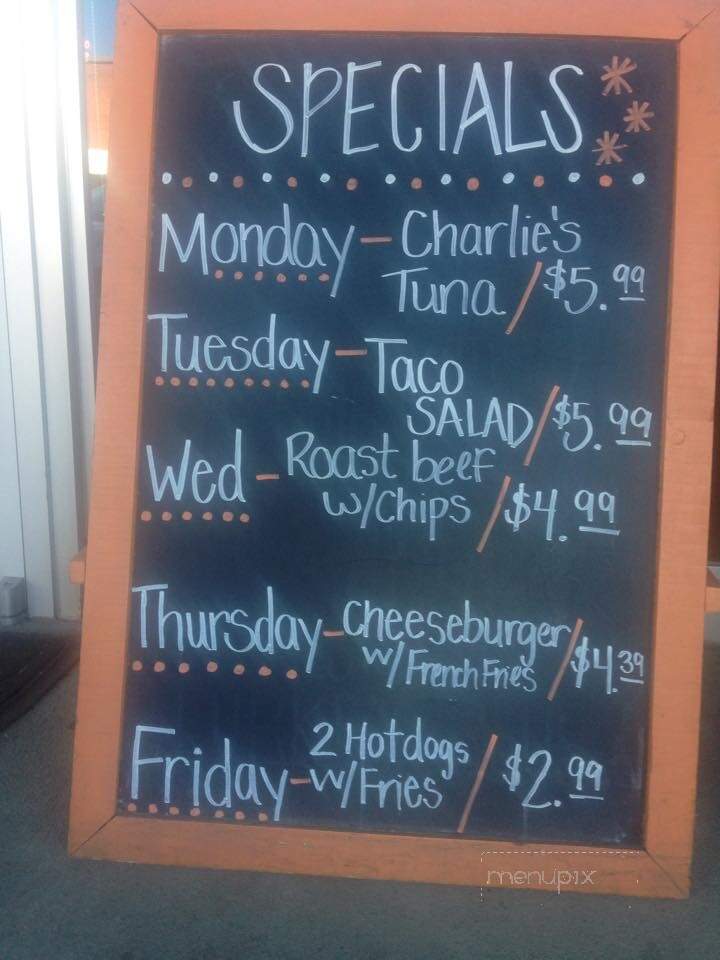 SPECIALS
Monday - Charlie's
Tuna / $5.99
Tuesday - Taco
SALAD / $5.99
Wed - Roast beef
w/Chips / $4.99
Thursday - Cheeseburger
w/ French Fries / $4.39
Friday - 2 Hotdogs
w/Fries / $2.99
menupix